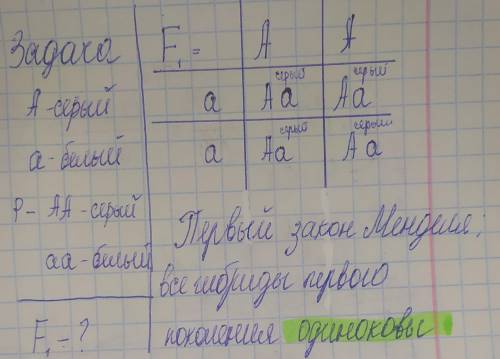 Задача
А - серый
а - белый
Р - АА - серый
аа - белый
F₁ - ?
F₁ = А А
а Аа серый Аа серый
а Аа серый Аа серый
Первый закон Менделя:
все гибриды первого
поколения одиноковы